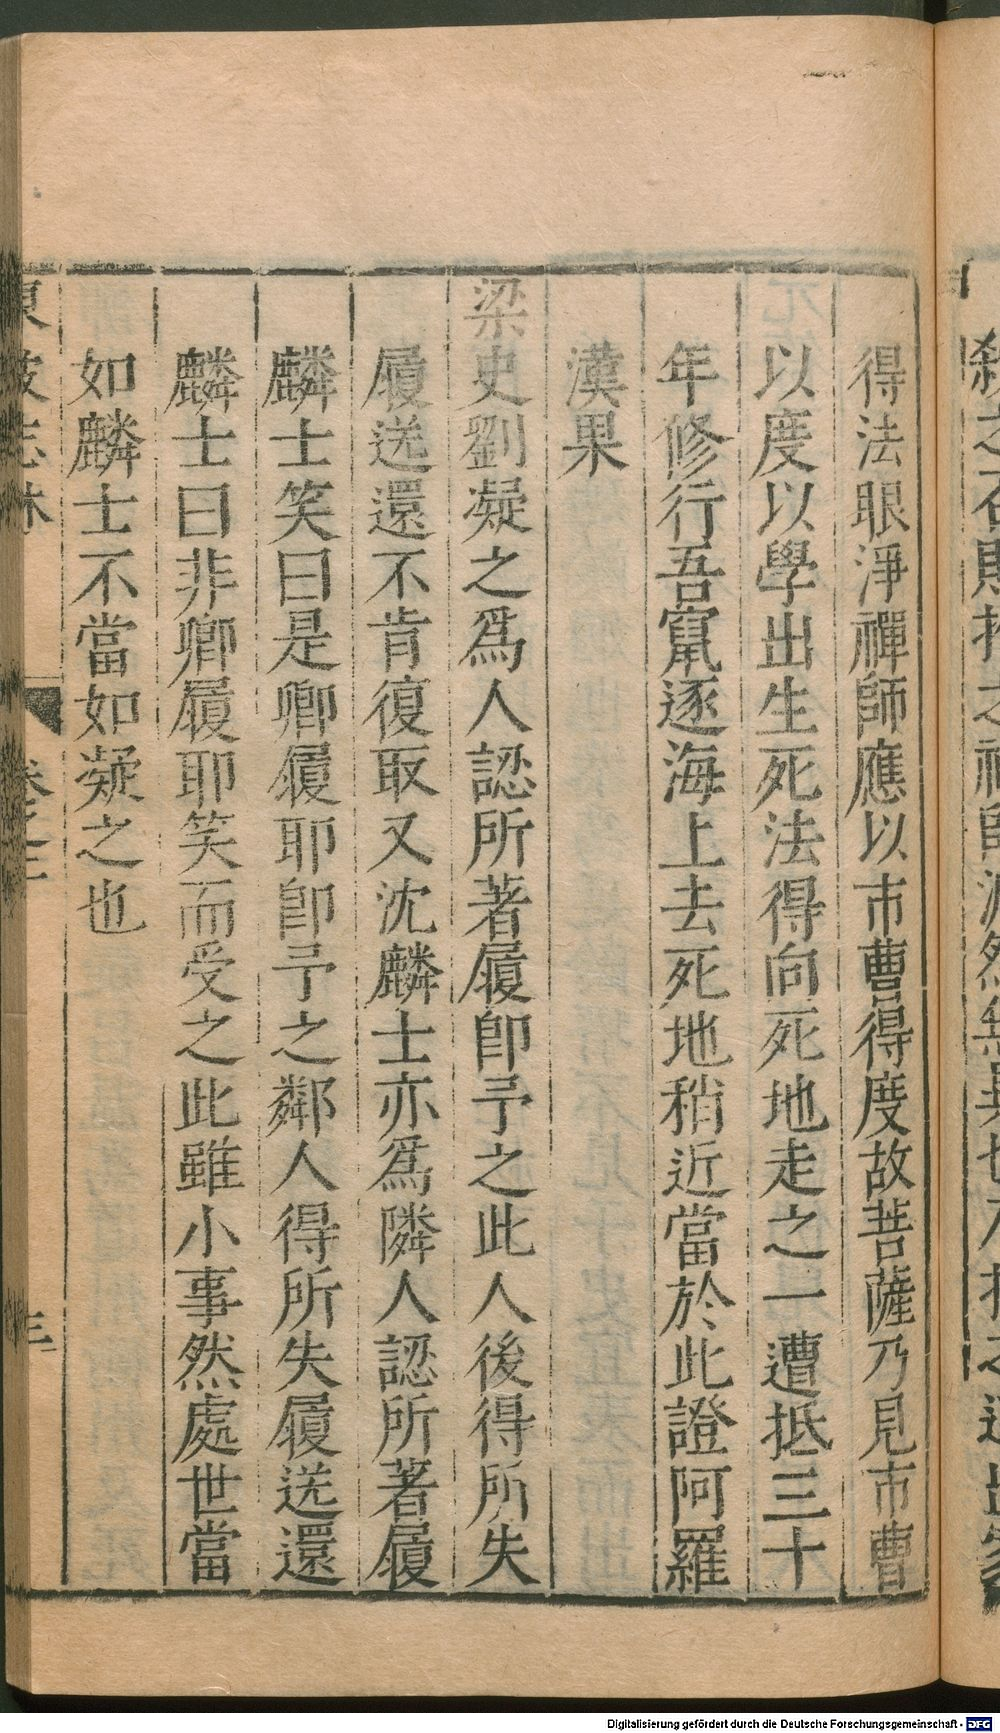 得法眼淨禪師應以市曹得度故菩薩乃見市曹
以度以學出生死法得向死地走之一遭抵三十
年修行吾竄逐海上去死地稍近當於此證阿羅
漢果
梁史劉凝之爲人認所著履卽予之此人後得所失
履送還不肯復取又沈麟士亦爲隣人認所著履
麟士笑曰是卿履耶卽予之鄰人得所失履送還
麟士曰非卿履耶笑而受之此雖小事然處世當
如麟士不當如凝之也
東坡志林 卷之三 三
Digitalisierung gefördert durch die Deutsche Forschungsgemeinschaft - DFG